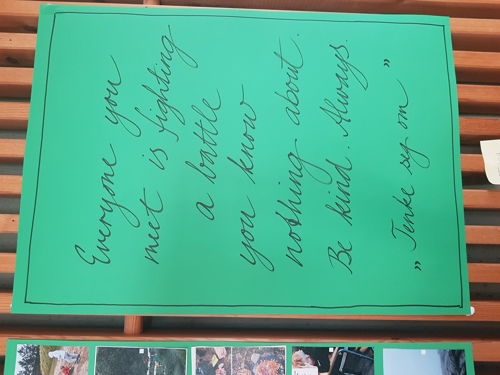 Everyone you
met is fighting
a battle
you know
nothing about.
Be kind. Always.
„Tenke seg om”